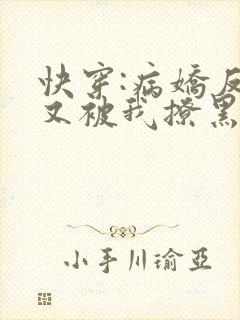 快穿:病嬌反
又被我撩黑
小手川瑜亞